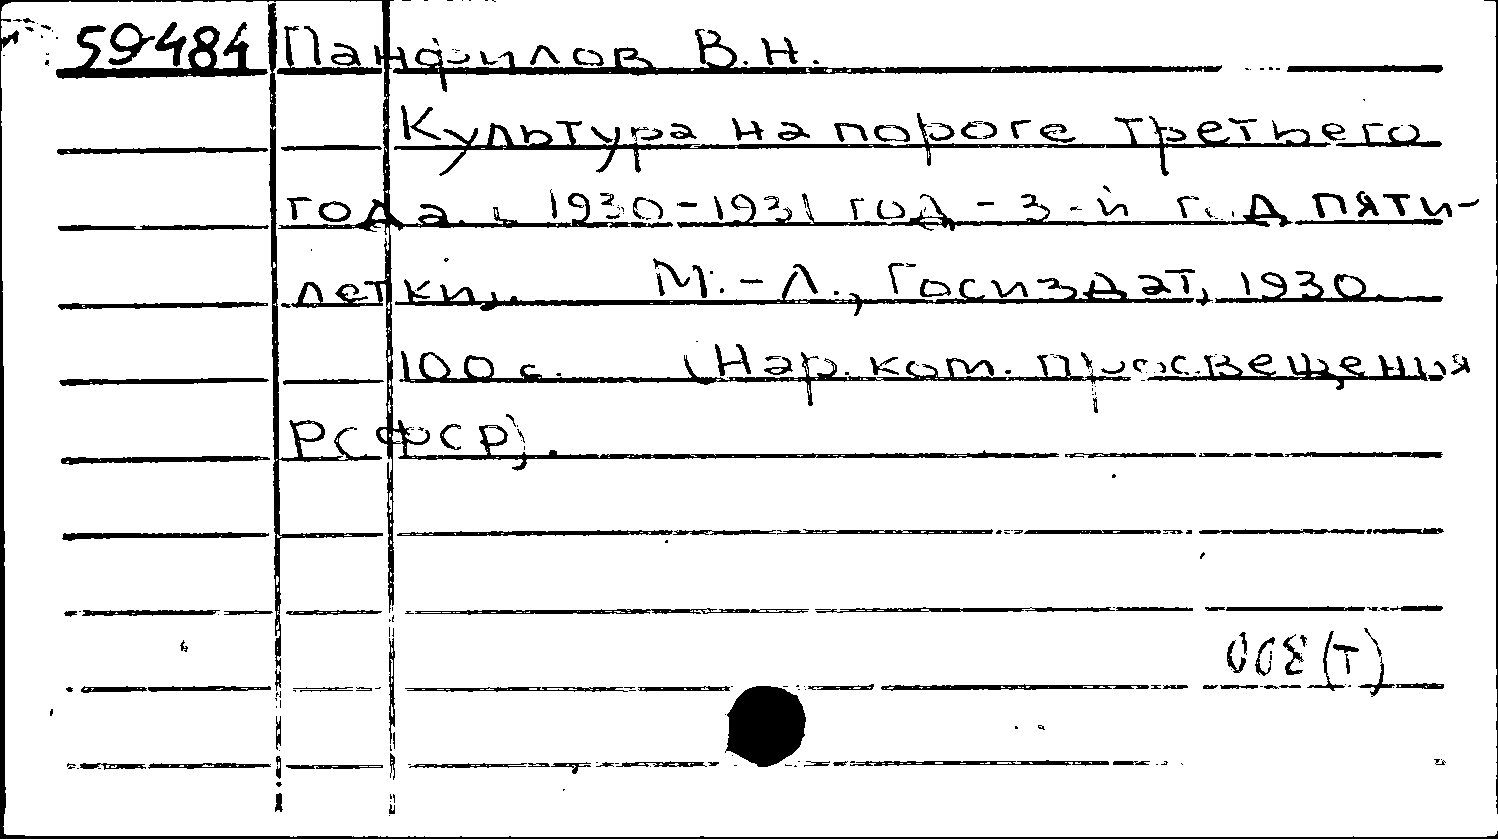 59484 Панфилов В.Н.
Культура на пороге третьего
года. 1930-1931 год - 3-й год пяти-
летки. М.-Л., Госиздат, 1930.
100 с. (Нар. ком. просвещения
РСФСР).